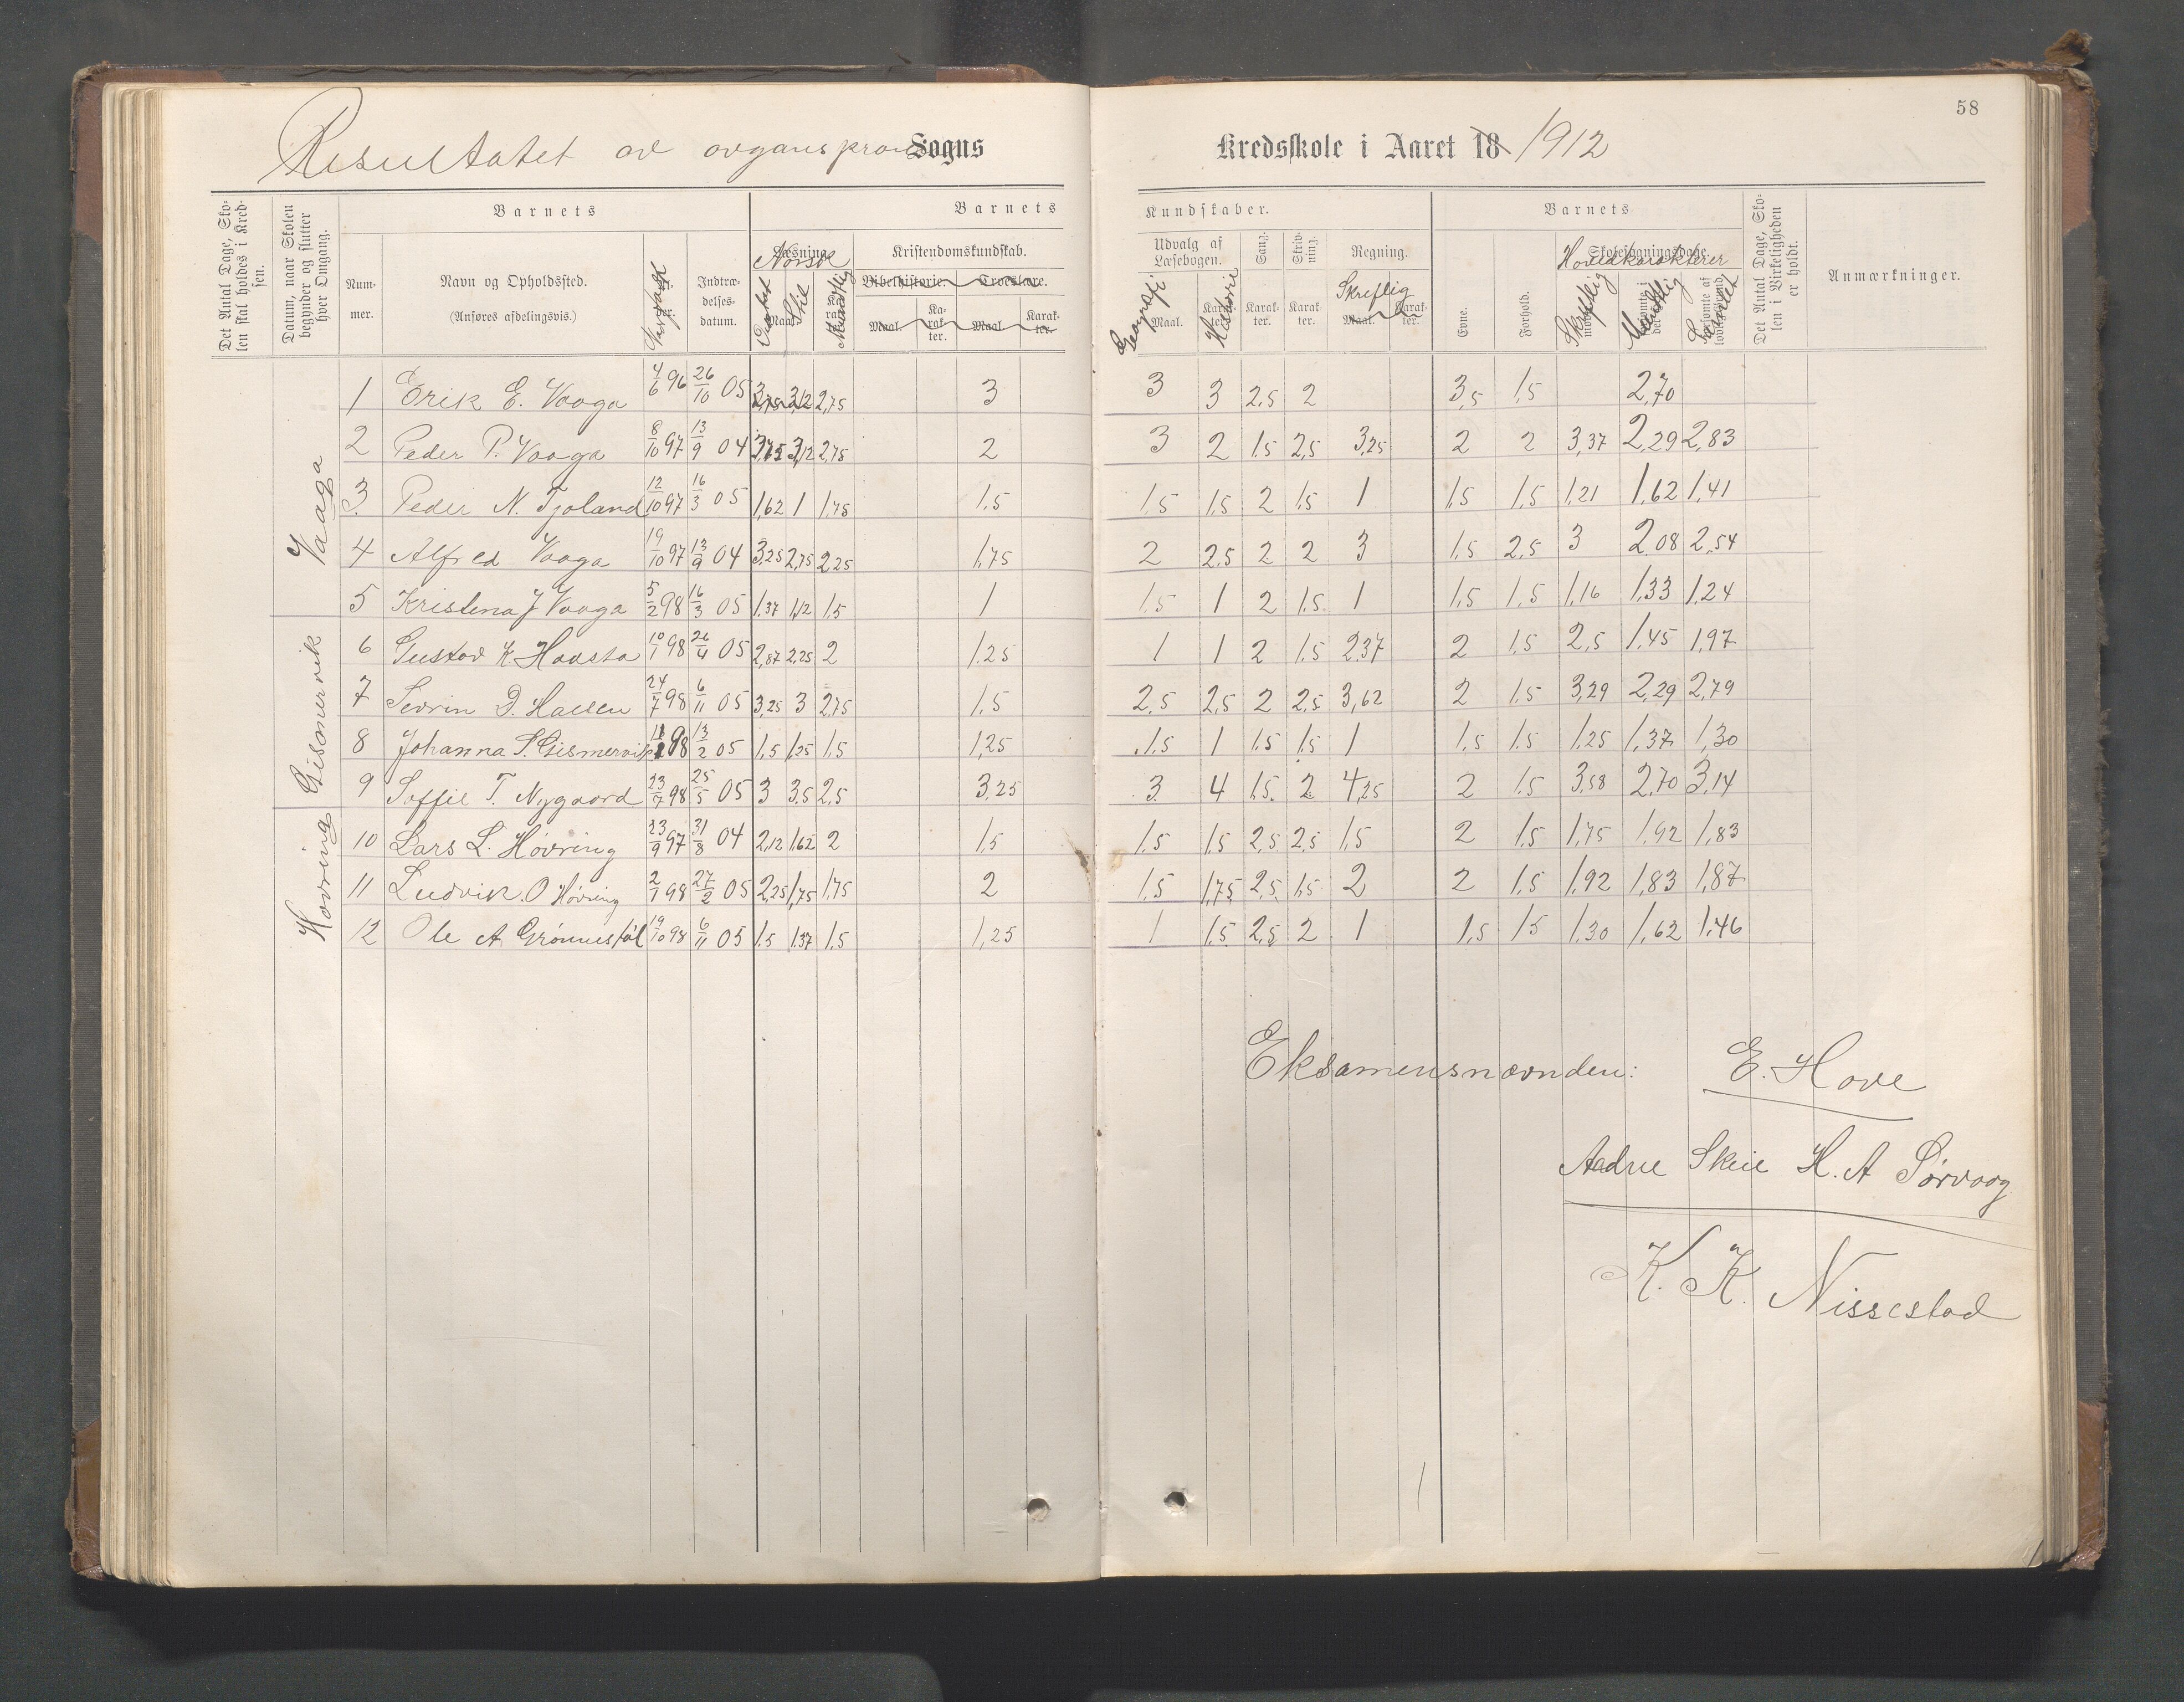 58
Resultatet av avgangsprøven Sogns Kredsskole i Aaret 18 1912
Det Antal Dage, Sko-
len skal holdes i Kred-
sen.
Datum, naar Skolen
begynder og slutter
hver Omgang.
Barnets
Num-
mer.
Navn og Opholdssted.
(Anføres afdelingsvis.)
Indtræ-
delses-
datum.
Barnets Kundskaber.
Læsning
Norsk
Diktat Stil Mundtlig
Kristendomskundskab.
Bibelhistorie. Troeslære.
Maal. Ka-
rak-
ter. Maal. Karak-
ter.
Udvalg af
Læsebogen.
Geografi Maal. Historie Karak-
ter.
Sang. Karak-
ter.
Skriv-
ning. Karak-
ter.
Regning.
Skriftlig
Maal. Karak-
ter.
Barnets
Evne. Forhold.
Skolesøgningsdage.
Hovedkarakterer
Skriftlig Mundtlig Samlet
Det Antal Dage, Sko-
len i Virkeligheden
er holdt.
Anmærkninger.
Vaaga
1 Erik E. Vaaga 4/6 96 26/10 05 3,75 3,12 2,75 3 3 3 2,5 2 3,5 1,5 2,70
2 Peder P. Vaaga 8/10 97 13/9 04 3,75 3,12 2,75 2 3 2 1,5 2,5 3,25 2 2 3,37 2,29 2,83
3. Peder N. Tjoland 12/10 97 16/3 05 1,62 1 1,75 1,5 1,5 1,5 2 1,5 1 1,5 1,5 1,21 1,62 1,41
4 Alfred Vaaga 19/10 97 13/9 04 3,25 2,75 2,25 1,75 2 2,5 2 2 3 1,5 2,5 3 2,08 2,54
5 Kristena J Vaaga 5/2 98 16/3 05 1,37 1,12 1,5 1 1,5 1 2 1,5 1 1,5 1,5 1,16 1,33 1,24
Gismervik
6 Gustav K. Haasta 10/1 98 26/4 05 2,87 2,25 2 1,25 1 1 2 1,5 2,37 2 1,5 2,5 1,45 1,97
7 Sevrin D. Hallen 24/7 98 6/11 05 3,25 3 2,75 1,5 2,5 2,5 2 2,5 3,62 2 1,5 3,29 2,29 2,79
8 Johanna S. Gismervik 98 13/2 05 1,5 1,25 1,5 1,25 1,5 1 1,5 1,5 1 1,5 1,5 1,25 1,37 1,30
9 Soffie T. Nygaard 23/7 98 25/5 05 3 3,5 2,5 3,25 3 4 1,5 2 4,25 2 1,5 3,58 2,70 3,14
Hovring
10 Lars L. Høvring 23/9 97 31/8 04 2,12 1,62 2 1,5 1,5 1,5 2,5 2,5 1,5 2 1,5 1,75 1,92 1,83
11 Ludvik. O Høvring 2/1 98 27/2 05 2,25 1,75 1,75 2 1,5 1,75 2,5 1,5 2 2 1,5 1,92 1,83 1,87
12 Ole A. Grønnestøl 19/10 98 6/11 05 1,5 1,37 1,5 1,25 1 1,5 2,5 2 1 1,5 1,5 1,30 1,62 1,46
Eksamensnævnden: E. Hove
Adne Skeie H. A Sørvaag
K. K. Nissestad